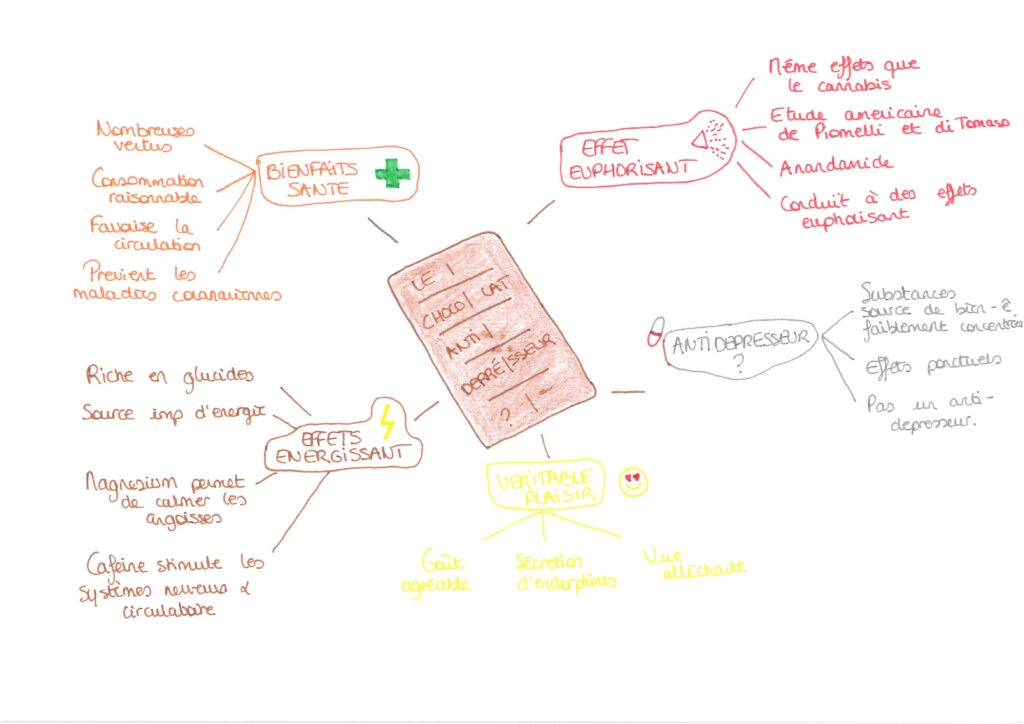 LE
CHOCOLAT
ANTI
DEPRÉSSEUR
?
BIENFAITS
SANTE
Nombreuses
vertus
Consommation
raisonnable
Favorise la
circulation
Prévient les
maladies coronariennes
EFFET
EUPHORISANT
Même effets que
le cannabis
Etude américaine
de Piomelli et di Tomaso
Anandamide
Conduit à des effets
euphorisant
ANTIDEPRESSEUR
?
Substances
source de bien-ê
faiblement concentrées
Effets ponctuels
Pas un anti-
depresseur.
VERITABLE
PLAISIR
Goût
agréable
Sécrétion
d'endorphines
Vue
alléchante
EFFETS
ENERGISSANT
Riche en glucides
Source imp d'energie
Magnesium permet
de calmer les
angoisses
Caféine stimule les
systèmes nerveux &
circulatoire